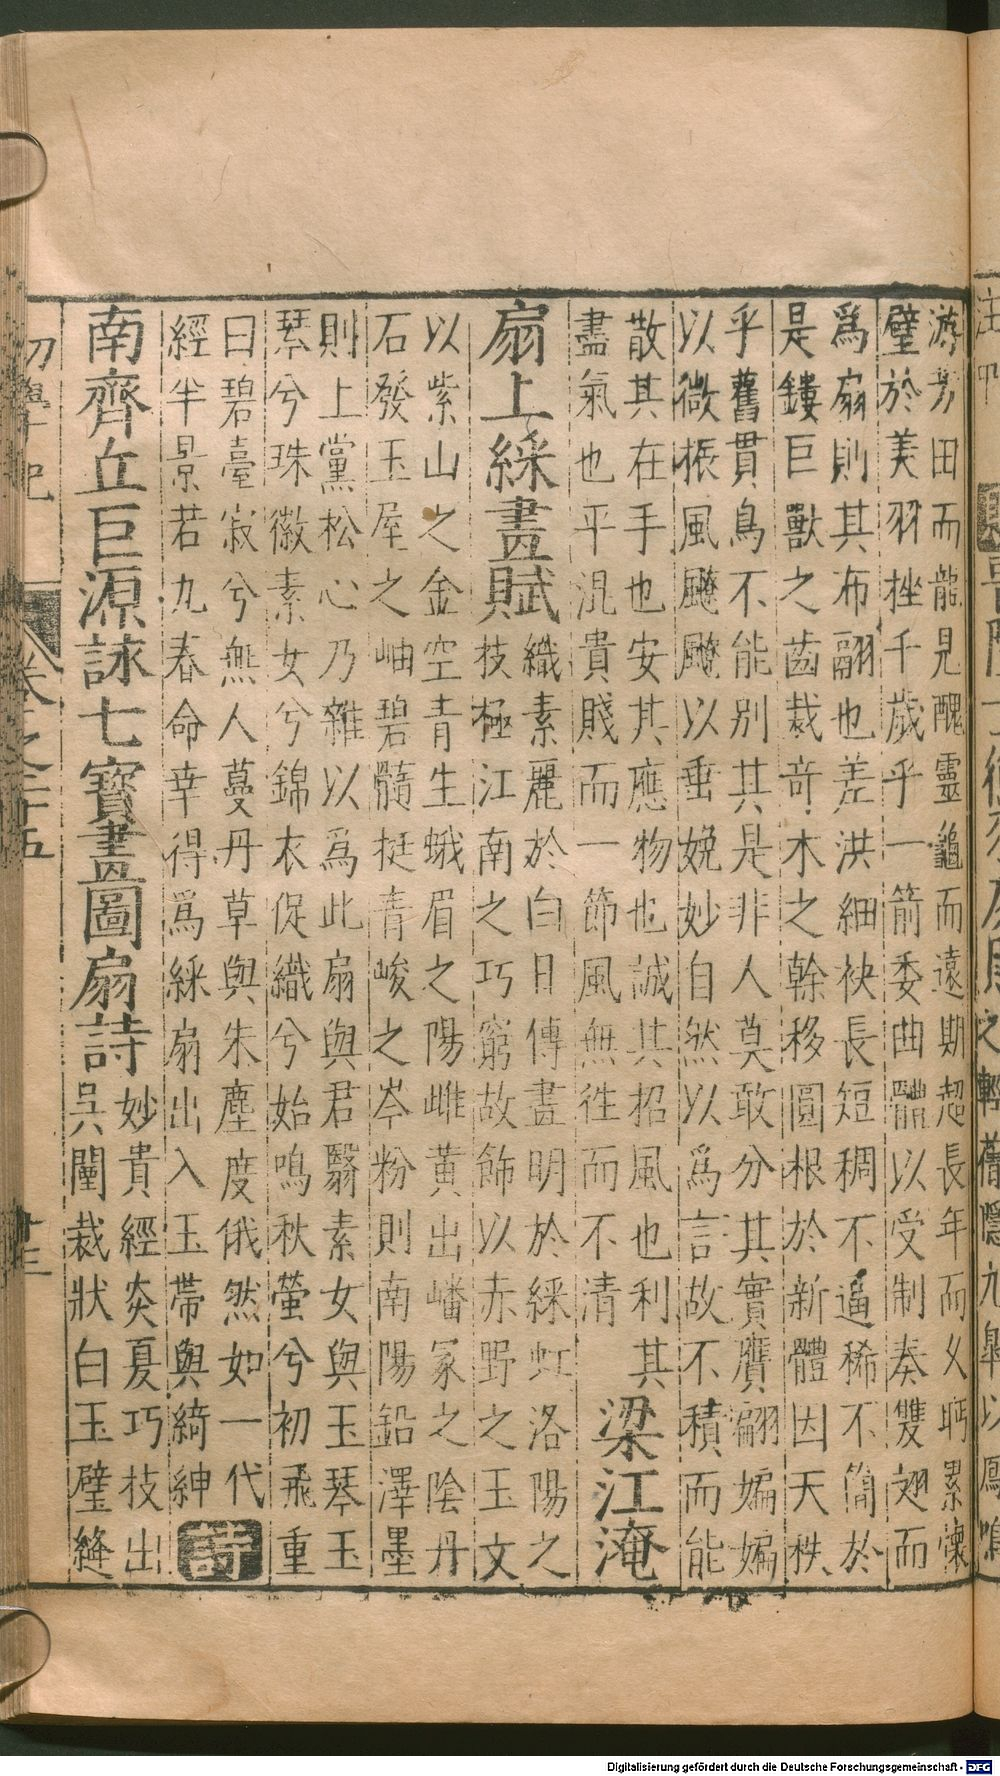 游芳田而龍見醜靈龜而遠期超長年而久眄累懷
璧於美羽挫千歲乎一箭委曲體以受制奏雙翅而
爲扇則其布翮也差洪細袂長短稠不逼稀不簡於
是鏤巨獸之齒裁奇木之幹移圓根於新體因天秩
乎舊貫鳥不能別其是非人莫敢分其實贗翩媥媥
以微振風飈飈以垂娩妙自然以爲言故不積而能
散其在手也安其應物也誠其招風也利其
盡氣也平混貴賤而一節風無徃而不清
梁江淹
扇上綵畫賦
織素麗於白日傳畫明於綵虹洛陽之
技極江南之巧窮故飾以赤野之玉文
以紫山之金空青生蛾眉之陽雌黃出嶓冢之陰丹
石發玉屋之岫碧髓挺青峻之岑粉則南陽鉛澤墨
則上黨松心乃雜以爲此扇與君翳素女與玉琴玉
琴兮珠徽素女兮錦衣促織兮始鳴秋螢兮初飛重
曰碧臺寂兮無人蔓丹草與朱塵度俄然如一代
經半景若九春命幸得爲綵扇出入玉帶與綺紳
詩
南齊丘巨源詠七寶畫圖扇詩
妙貴經炎夏巧技出
吳闈裁狀白玉璧縫
初學記
卷之二十五
廿三
Digitalisierung gefördert durch die Deutsche Forschungsgemeinschaft - DFG